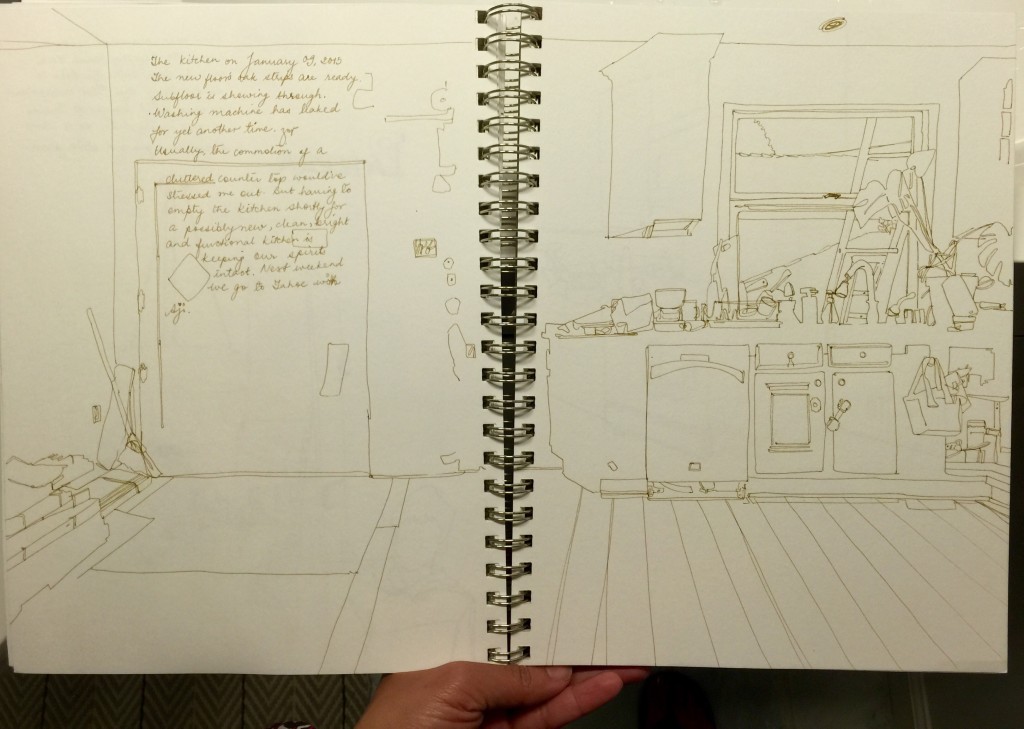 The kitchen on January 09, 2015
The new floor's oak strips are ready.
Subfloor is showing through.
Washing machine has leaked
for yet another time.
Usually the commotion of a
cluttered counter top would've
stressed me out but having to
empty the kitchen shortly for
a possibly new, clean, bright
and functional kitchen is
keeping our spirits
intact. Next weekend
we go to Tahoe with